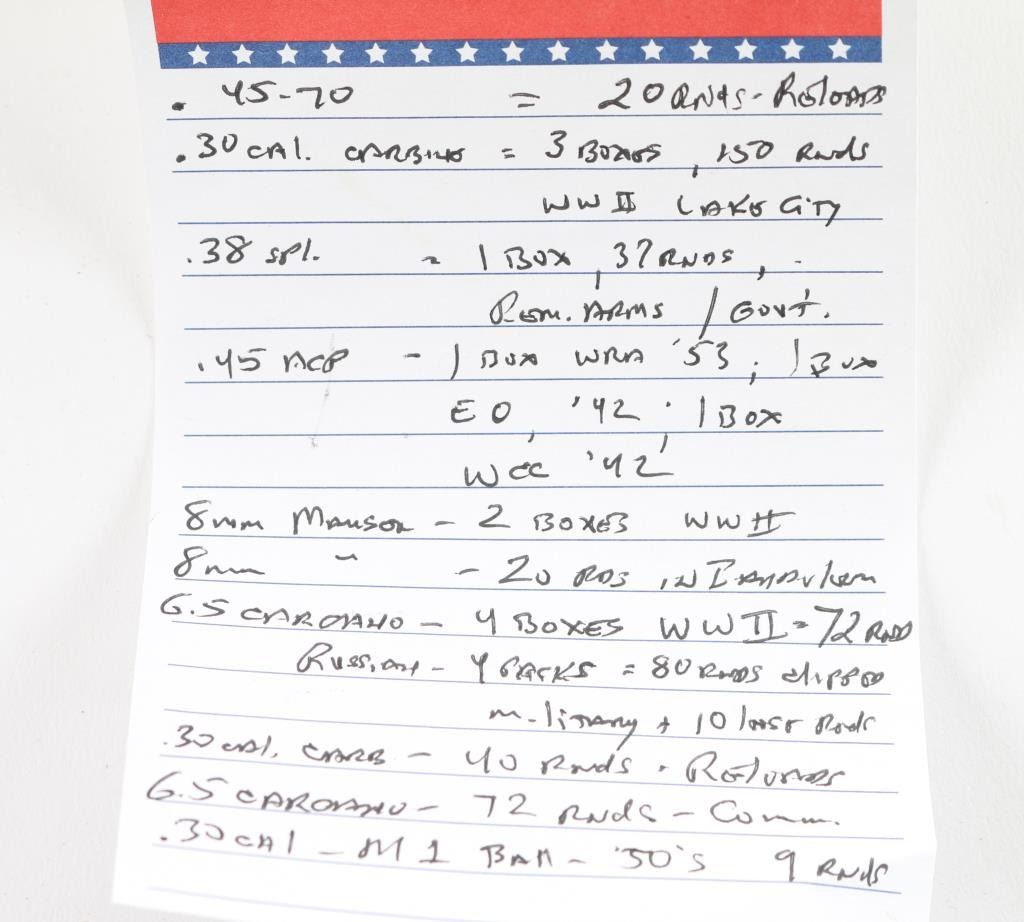 . 45-70 = 20 RNDS - RELOADS
.30 CAL. CARBINE = 3 BOXES, 150 RNDS
WW II LAKE CITY
.38 SPL. - 1 BOX, 37 RNDS,
REM. ARMS / GOVT.
.45 ACP - 1 BOX WRA '53; 1 BOX
EO, '42; 1 BOX
WCC '42
8mm MAUSER - 2 BOXES WW II
8mm " - 20 RDS IN
6.5 CARCANO - 4 BOXES WW II = 72 RNDS
RUSSIAN - 4 PACKS = 80 RNDS CLIPPED
MILITARY + 10 LOOSE RNDS
.30 CAL. CARB - 40 RNDS - RELOADS
6.5 CARCANO - 72 RNDS - COMM.
.30 CAL - M1 BALL - '50'S 9 RNDS